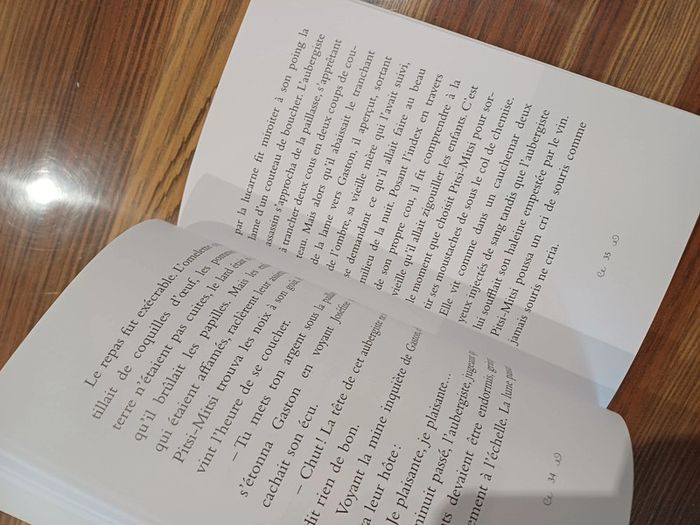 Le repas fut exécrable. L'omelette
tillait de coquilles d'œuf, les pommes
terre n'étaient pas cuites, le lard était
qu'il brûlait les papilles. Mais les
qui étaient affamés, raclèrent leur
Pitsi-Mitsi trouva les noix à son goût
vint l'heure de se coucher.
– Tu mets ton argent sous la
s'étonna Gaston en voyant Joséfine
cachait son écu.
– Chut ! La tête de cet aubergiste
dit rien de bon.
Voyant la mine inquiète de Gaston,
a leur hôte :
Je plaisante, je plaisante...
minuit passé, l'aubergiste, jugeant
ts devaient être endormis,
ement à l'échelle. La lune
34
par la lucarne fit miroiter à son poing la
lame d'un couteau de boucher. L'aubergiste
assassin s'approcha de la paillasse, s'apprêtant
à trancher deux cous en deux coups de cou-
teau. Mais alors qu'il abaissait le tranchant
de la lame vers Gaston, il aperçut, sortant
de l'ombre, sa vieille mère qui l'avait suivi,
se demandant ce qu'il allait faire au beau
milieu de la nuit. Posant l'index en travers
de son propre cou, il fit comprendre à la
vieille qu'il allait zigouiller les enfants. C'est
le moment que choisit Pitsi-Mitsi pour sor-
tir ses moustaches de sous le col de chemise.
Elle vit comme dans un cauchemar deux
yeux injectés de sang tandis que l'aubergiste
lui soufflait son haleine empestée par le vin.
Pitsi-Mitsi poussa un cri de souris comme
jamais souris ne cria.
35